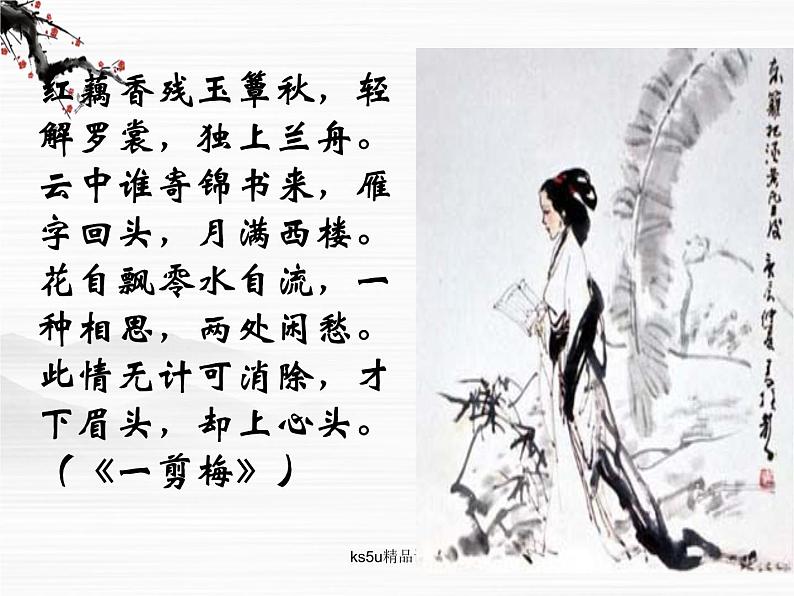 红藕香残玉簟秋，轻
解罗裳，独上兰舟。
云中谁寄锦书来，雁
字回头，月满西楼。
花自飘零水自流，一
种相思，两处闲愁。
此情无计可消除，才
下眉头，却上心头。
（《一剪梅》）
东篱把酒黄昏后
ks5u精品